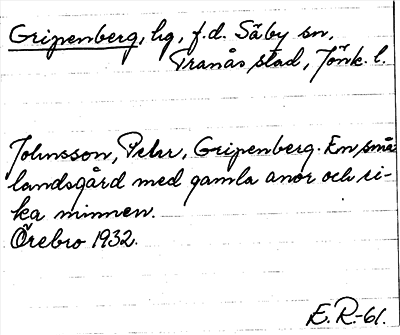 Gripenberg, hg, f.d. Säby sn,
Tranås stad, Jönk. l.
Johnsson, Pehr, Gripenberg. En små-
landsgård med gamla anor och ri-
ka minnen.
Örebro 1932.
E.R.-61.